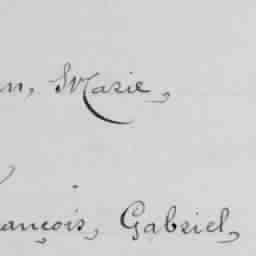 n, Marie,
ançois, Gabriel,